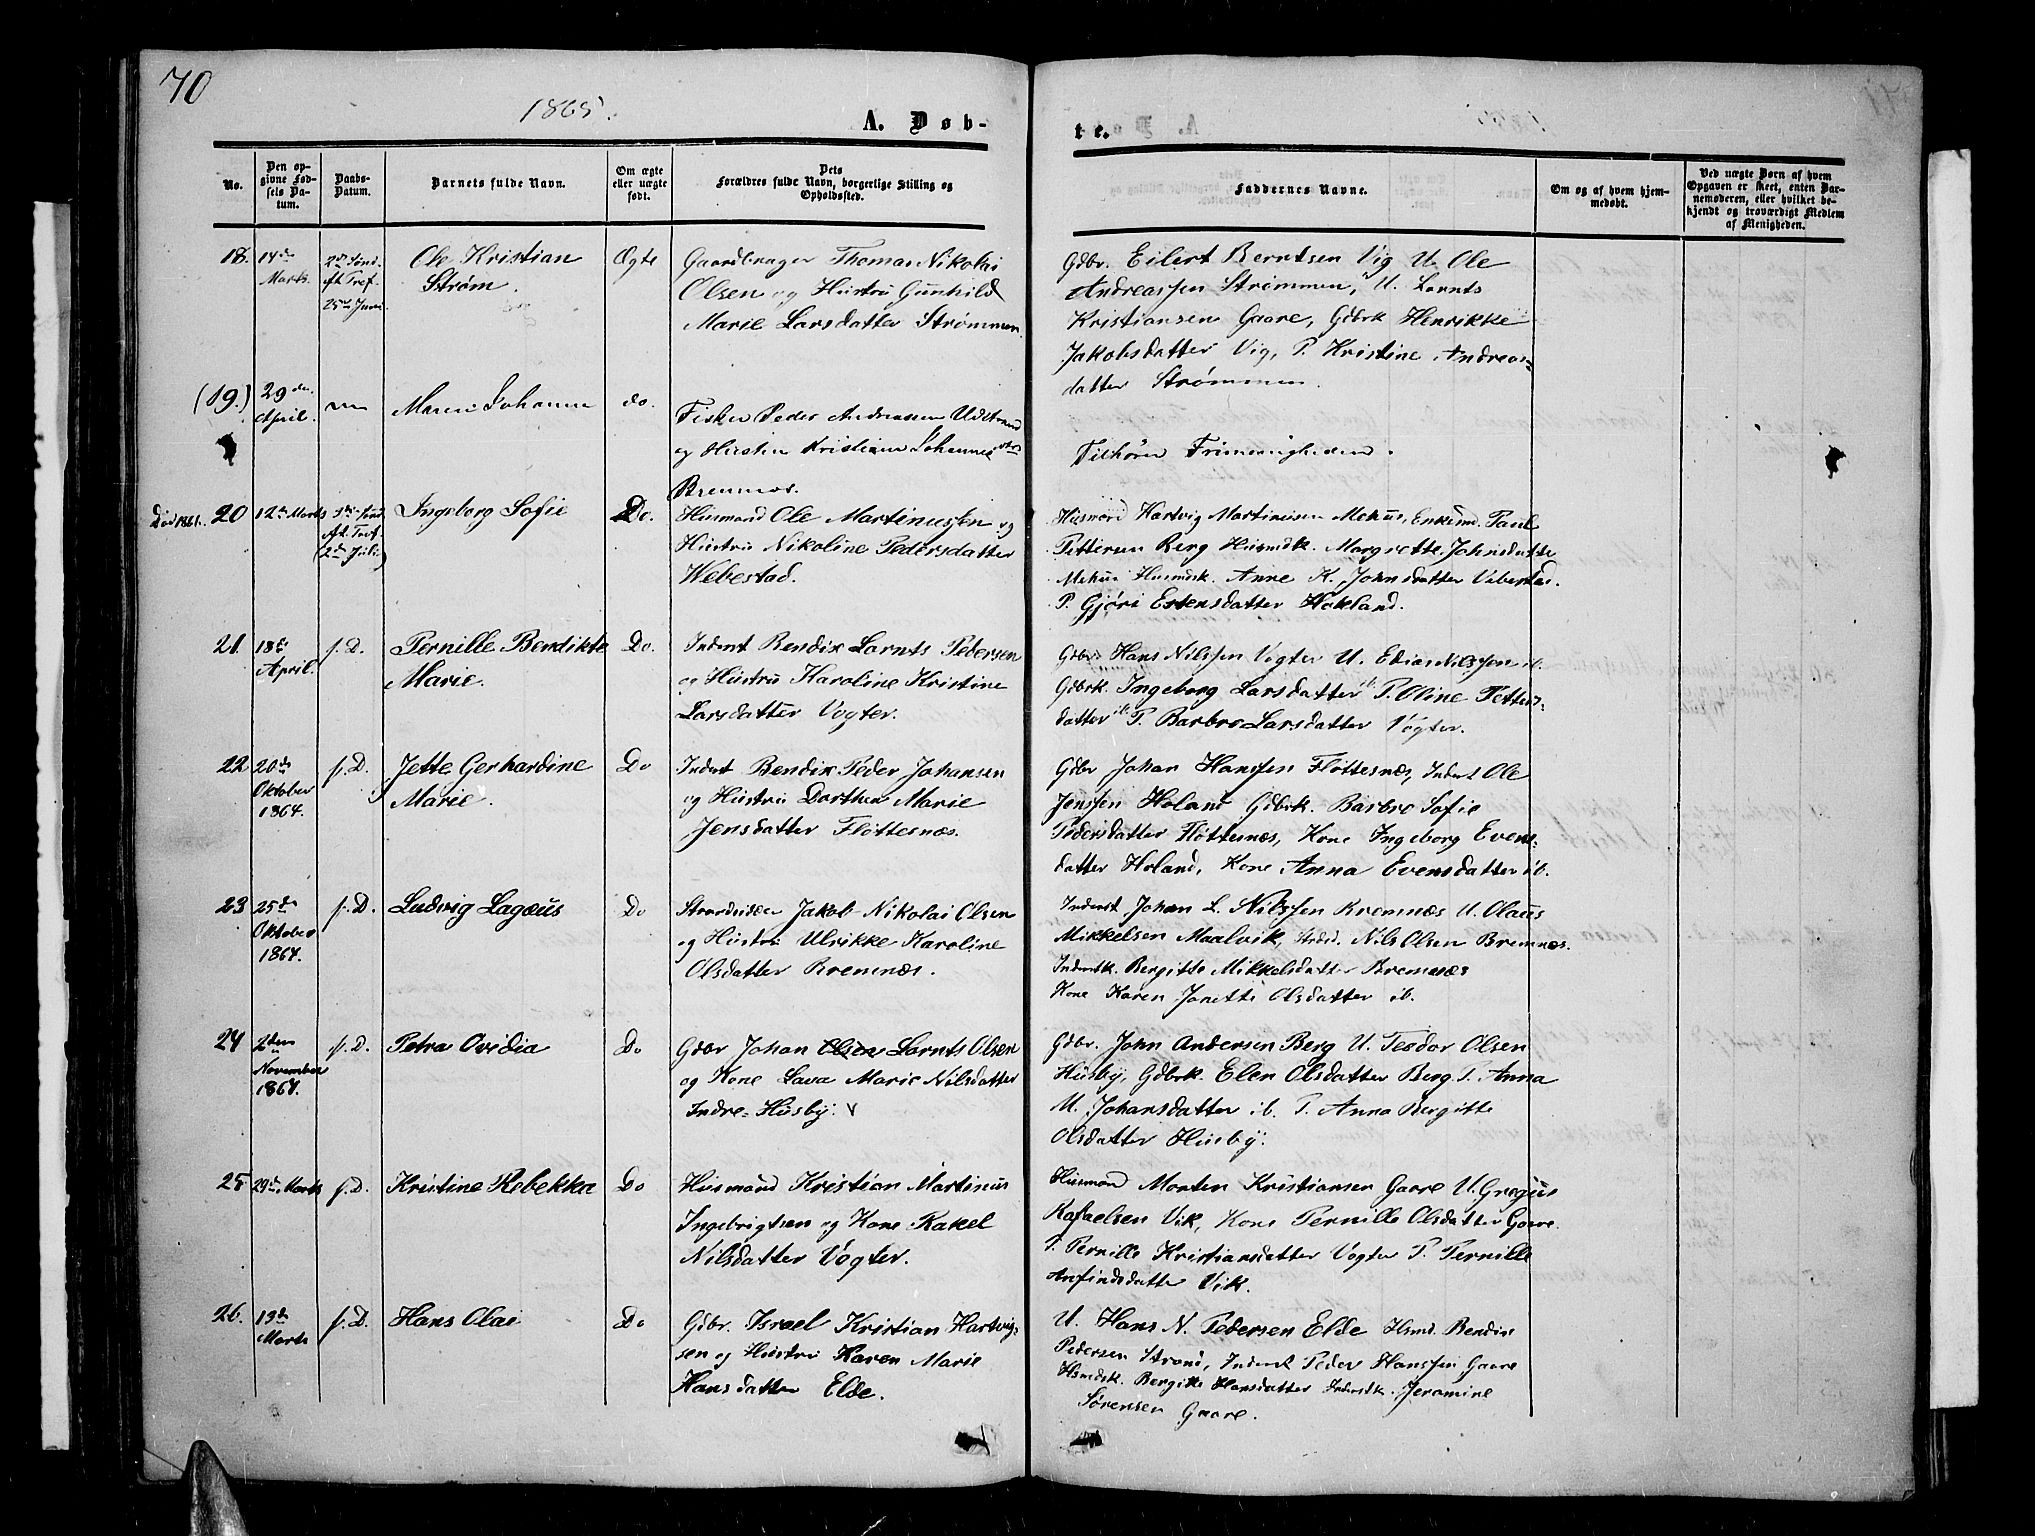 70
1865.
A. Døb-
te.
No.
Den op-
givne Fød-
sels Da-
tum.
Daabs-
Datum.
Barnets fulde Navn.
Om ægte
eller uægte
født.
Dets
Forældres fulde Navn, borgerlige Stilling og
Opholdssted.
Faddernes Navne.
Om og af hvem hjem-
medøbt.
Ved uægte Børn af hvem
Opgaven er skeet, enten Bar-
nemoderen, eller hvilket be-
kjendt og troværdigt Medlem
af Menigheden.
18.
14de
Marts.
2den Sønd.
eft. Tref.
25de Juni.
Ole Kristian
Strøm.
Ægte
Gaardbruger Thomas Nikolai
Olsen og Hustru Gunhild
Marie Larsdatter Strømmen
Gdbr. Eilert Berntsen Vig U. Ole
Andreassen Strømmen, U. Lornts
Kristiansen Gaare, Gdbrk Henrikke
Jakobsdatter Vig, P. Kristine Andreas-
datter Strømmen.
(19.)
29de
April.
Maren Johanna
do.
Fisker Peder Andreassen Udstrand
og Hustru Kristiane Johannesdtr
Bremnes.
Tilhører Frimenigheden.
Død 1861.
20
12te Marts
3die Sønd.
eft. Tref.
(2den Juli)
Ingeborg Sofie
Do.
Husmand Ole Martinussen og
Hustru Nikoline Pedersdatter
Webestad.
Husmand Hartvig Martinusen Mehus, Enkemd. Paul
Pettersen Berg Husmdk. Margrette Johnsdatte
Mehus Husmdsk. Anne K. Johnsdatter Vebestad.
P. Gjøri Estensdatter Hokland.
21
18de
April.
s. D.
Pernille Bendikte
Marie.
Do.
Inderst Bendix Lornts Pedersen
og Hustru Karoline Kristine
Larsdatter Vogter.
Gdbr. Hans Nilssen Vogter U. Edias Nilssen ib.
Gdbrk. Ingeborg Larsdatter ib. P. Oline Petters-
datter ib. P. Barbro Larsdatter Vogter.
22
20de
Oktober
1864.
s. D.
Jette Gerhardine
Marie.
Do
Inderst Bendix Peder Johansen
og Hustru Dorthea Marie
Jensdatter Fløttesnæs.
Gdbr Johan Hanssen Fløttesnæs, Inderst Ole
Jenssen Holand Gdbrk. Barbro Sofie
Pedersdatter Fløttesnæs, Kone Ingeborg Evens-
datter Holand, Kone Anna Evensdatter ib.
23
25de
Oktober
1864.
s. D.
Ludvig Lagæus
Do
Strandsidder Jakob Nikolai Olsen
og Hustru Ulrikke Karoline
Olsdatter Bremnæs.
Inderst Johan L. Nilssen Bremnæs U. Olaus
Mikkelsen Maalvik, Strdsd. Nils Olsen Bremnæs.
Inderstk. Bergitte Mikkelsdatter Bremnæs
Kone Karen Janette Olsdatter ib.
24
2den
November
1864.
s. D.
Petra Ovidia
Do
Gdbr Johan Olsen Lornts Olsen
og Kone Lava Marie Nilsdatter
Indre-Husby.
Gdbr. John Andersen Berg U. Teodor Olsen
Husby, Gdbrk. Elen Olsdatter Berg P. Anna
M. Johansdatter ib. P. Anna Bergitte
Olsdatter Husby.
25
29de Marts
s. D.
Kristine Rebekka
Do
Husmand Kristian Martinus
Ingebrigtsen og Kone Rakel
Nilsdatter Vogter.
Husmand Morten Kristiansen Gaare U. Gregus
Rafaelsen Vik, Kone Pernille Olsdatter Gaare.
P. Pernille Kristiansdatter Vogter P. Pernille
Anfindsdatter Vik.
26.
13de
Marts
s. D.
Hans Olai
Do
Gdbr. Israel Kristian Hartvig-
sen og Hustru Karen Marie
Hansdatter Elde.
U. Hans N. Pedersen Elde Hsmd. Bendix
Pedersen Strand, Inderst Peder Hanssen Gaare
Hsmdsk. Bergitte Hansdatter Inderstk. Jeramine
Sørensen Gaare.